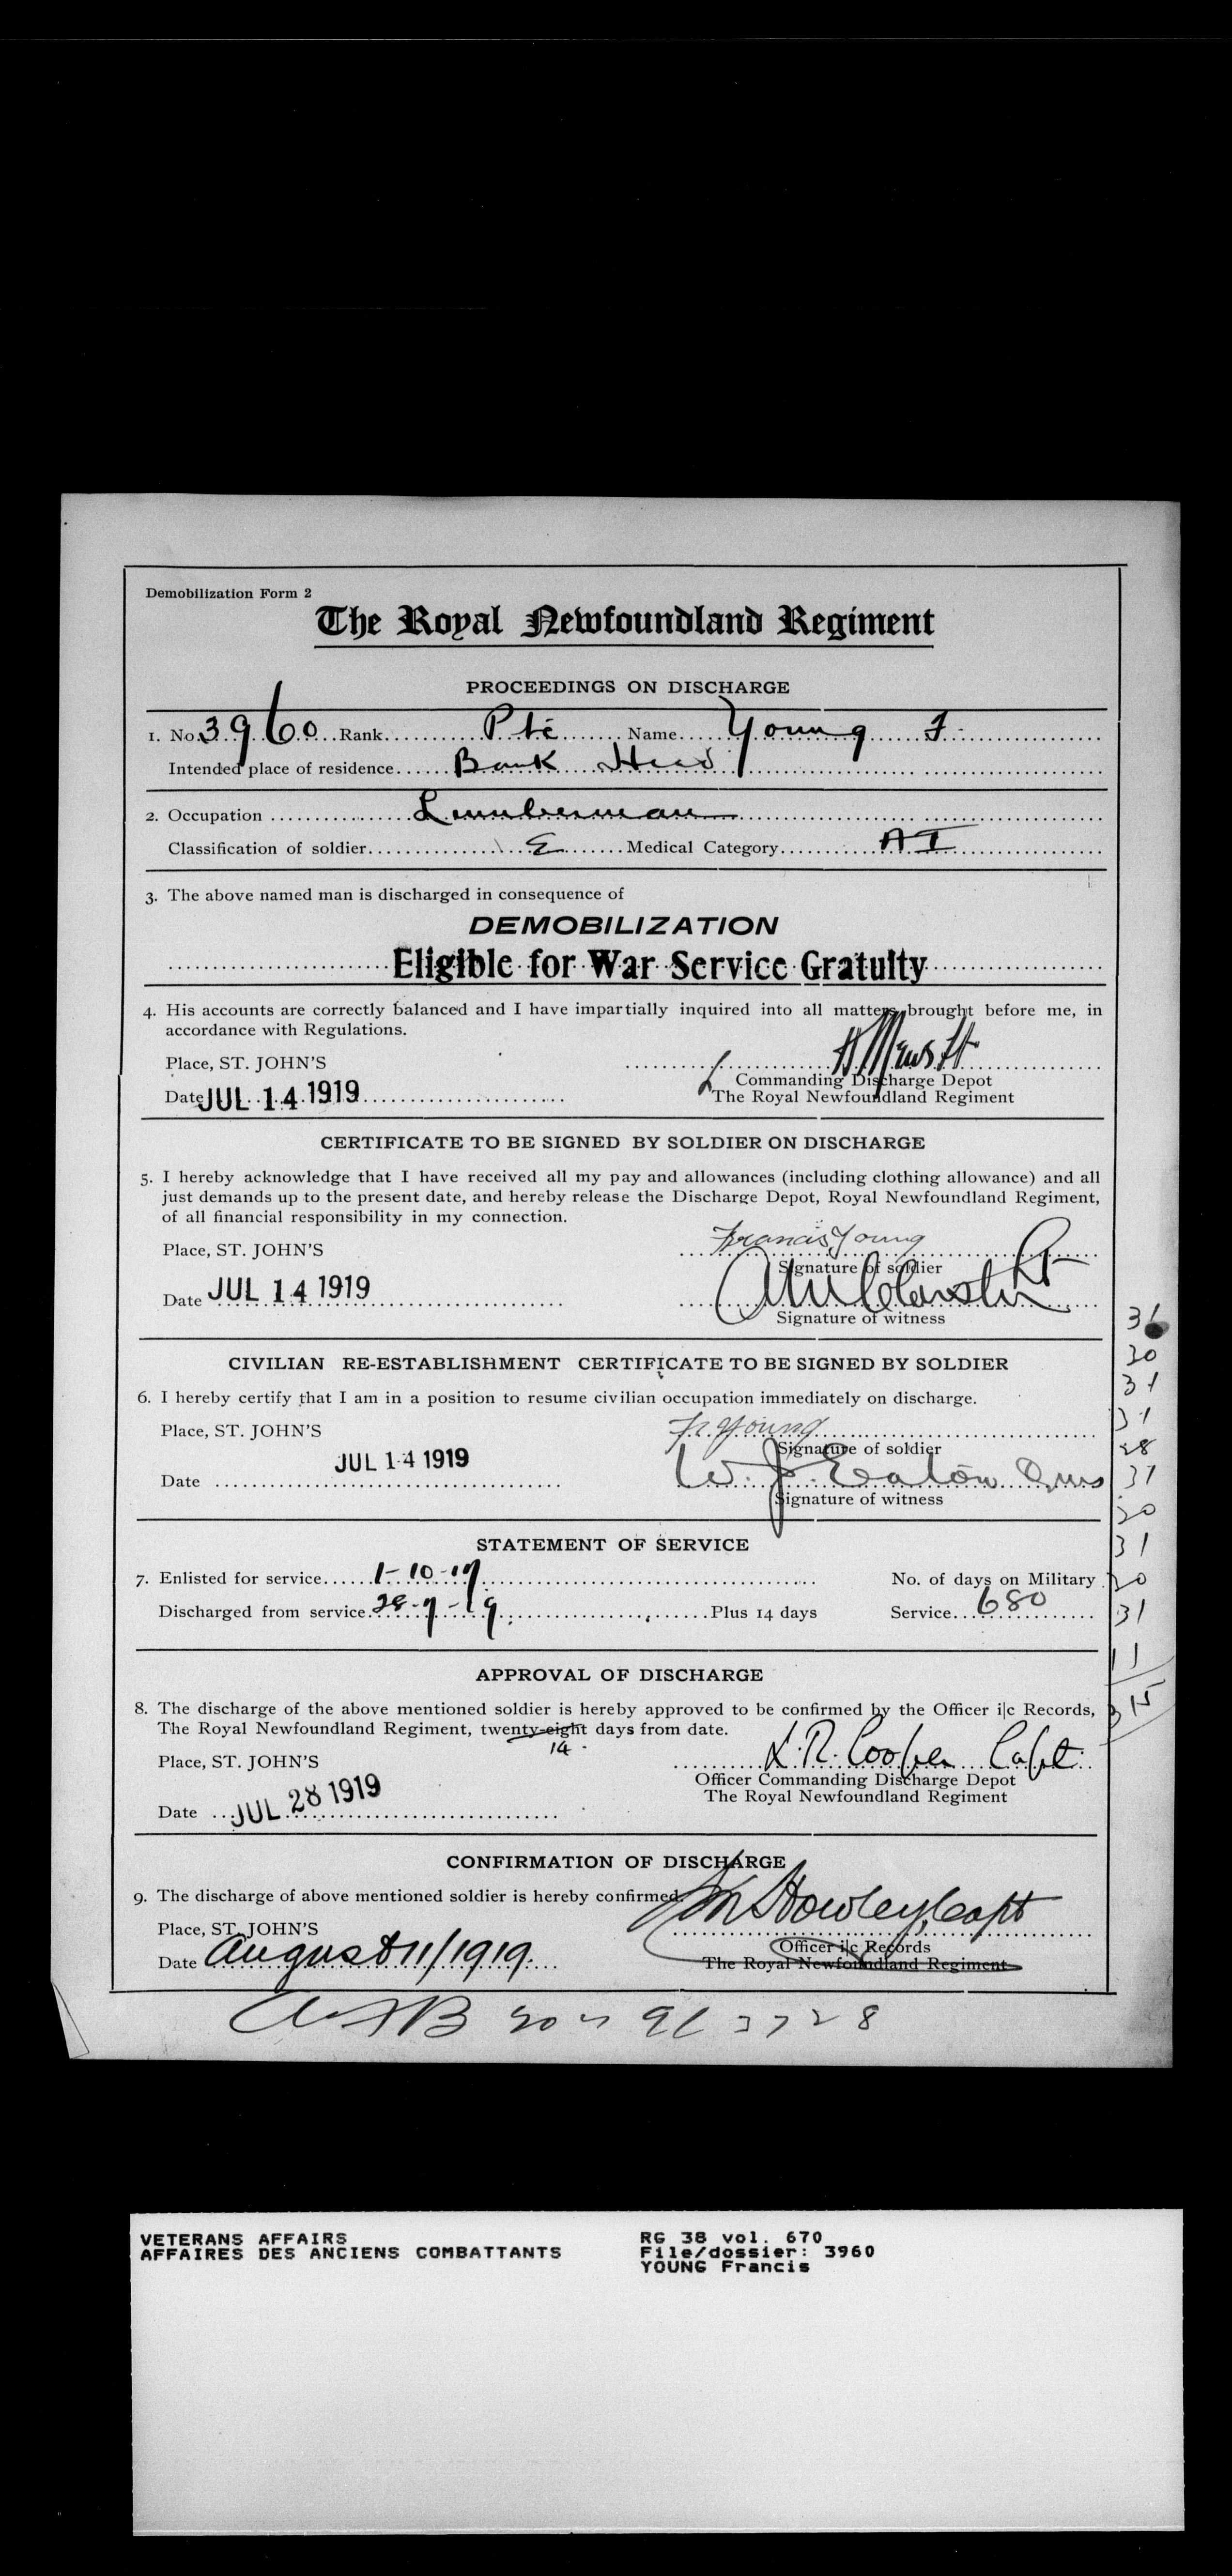 Demobilization Form 2
The Royal Newfoundland Regiment
PROCEEDINGS ON DISCHARGE
1. No. 3960 Rank Pte Name Young F.
Intended place of residence Bank Head
2. Occupation Lumberman
Classification of soldier E Medical Category A I
3. The above named man is discharged in consequence of
DEMOBILIZATION
Eligible for War Service Gratuity
4. His accounts are correctly balanced and I have impartially inquired into all matters brought before me, in
accordance with Regulations.
Place, ST. JOHN'S
Commanding Discharge Depot
Date JUL 14 1919 The Royal Newfoundland Regiment
CERTIFICATE TO BE SIGNED BY SOLDIER ON DISCHARGE
5. I hereby acknowledge that I have received all my pay and allowances (including clothing allowance) and all
just demands up to the present date, and hereby release the Discharge Depot, Royal Newfoundland Regiment,
of all financial responsibility in my connection.
Place, ST. JOHN'S Francis Young
Signature of soldier
Date JUL 14 1919
Signature of witness
CIVILIAN RE-ESTABLISHMENT CERTIFICATE TO BE SIGNED BY SOLDIER
6. I hereby certify that I am in a position to resume civilian occupation immediately on discharge.
Place, ST. JOHN'S Fr. Young
Signature of soldier
Date JUL 14 1919 W. J. Eaton
Signature of witness
STATEMENT OF SERVICE
7. Enlisted for service 1-10-17 No. of days on Military
Discharged from service 28-7-19. Plus 14 days Service 680
31
30
31
31
28
31
30
31
30
31
11
315
APPROVAL OF DISCHARGE
8. The discharge of the above mentioned soldier is hereby approved to be confirmed by the Officer i|c Records,
The Royal Newfoundland Regiment, twenty-eight days from date.
14
Place, ST. JOHN'S L.R. Cooper Capt.
Officer Commanding Discharge Depot
The Royal Newfoundland Regiment
Date JUL 28 1919
CONFIRMATION OF DISCHARGE
9. The discharge of above mentioned soldier is hereby confirmed.
Howley, Capt
Place, ST. JOHN'S
Officer i|c Records
Date August 11/1919. The Royal Newfoundland Regiment
VETERANS AFFAIRS
AFFAIRES DES ANCIENS COMBATTANTS
RG 38 vol. 670
File/dossier: 3960
YOUNG Francis